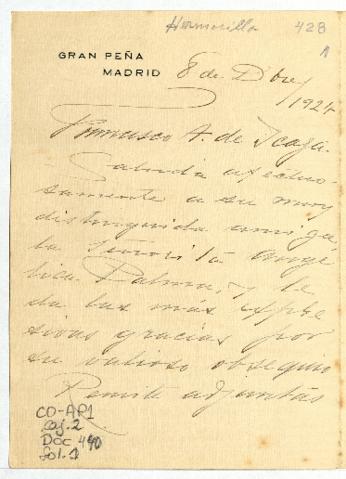 Hermosilla 428
1
GRAN PEÑA
MADRID
8 de Dbre/
1924
Francisco A. de Icaza.
Saluda afectuo-
samente a su muy
distinguida amiga
la Señorita Angé-
lica Palma, y le
da las más expre
sivas gracias por
su valioso obsequio
Remite adjuntas
CO-AP1
caj. 2
Doc 440
fol. 1